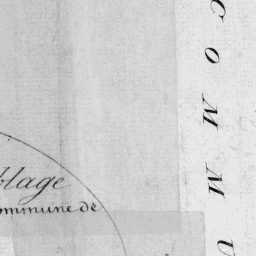 blage
ommune de
COMMU